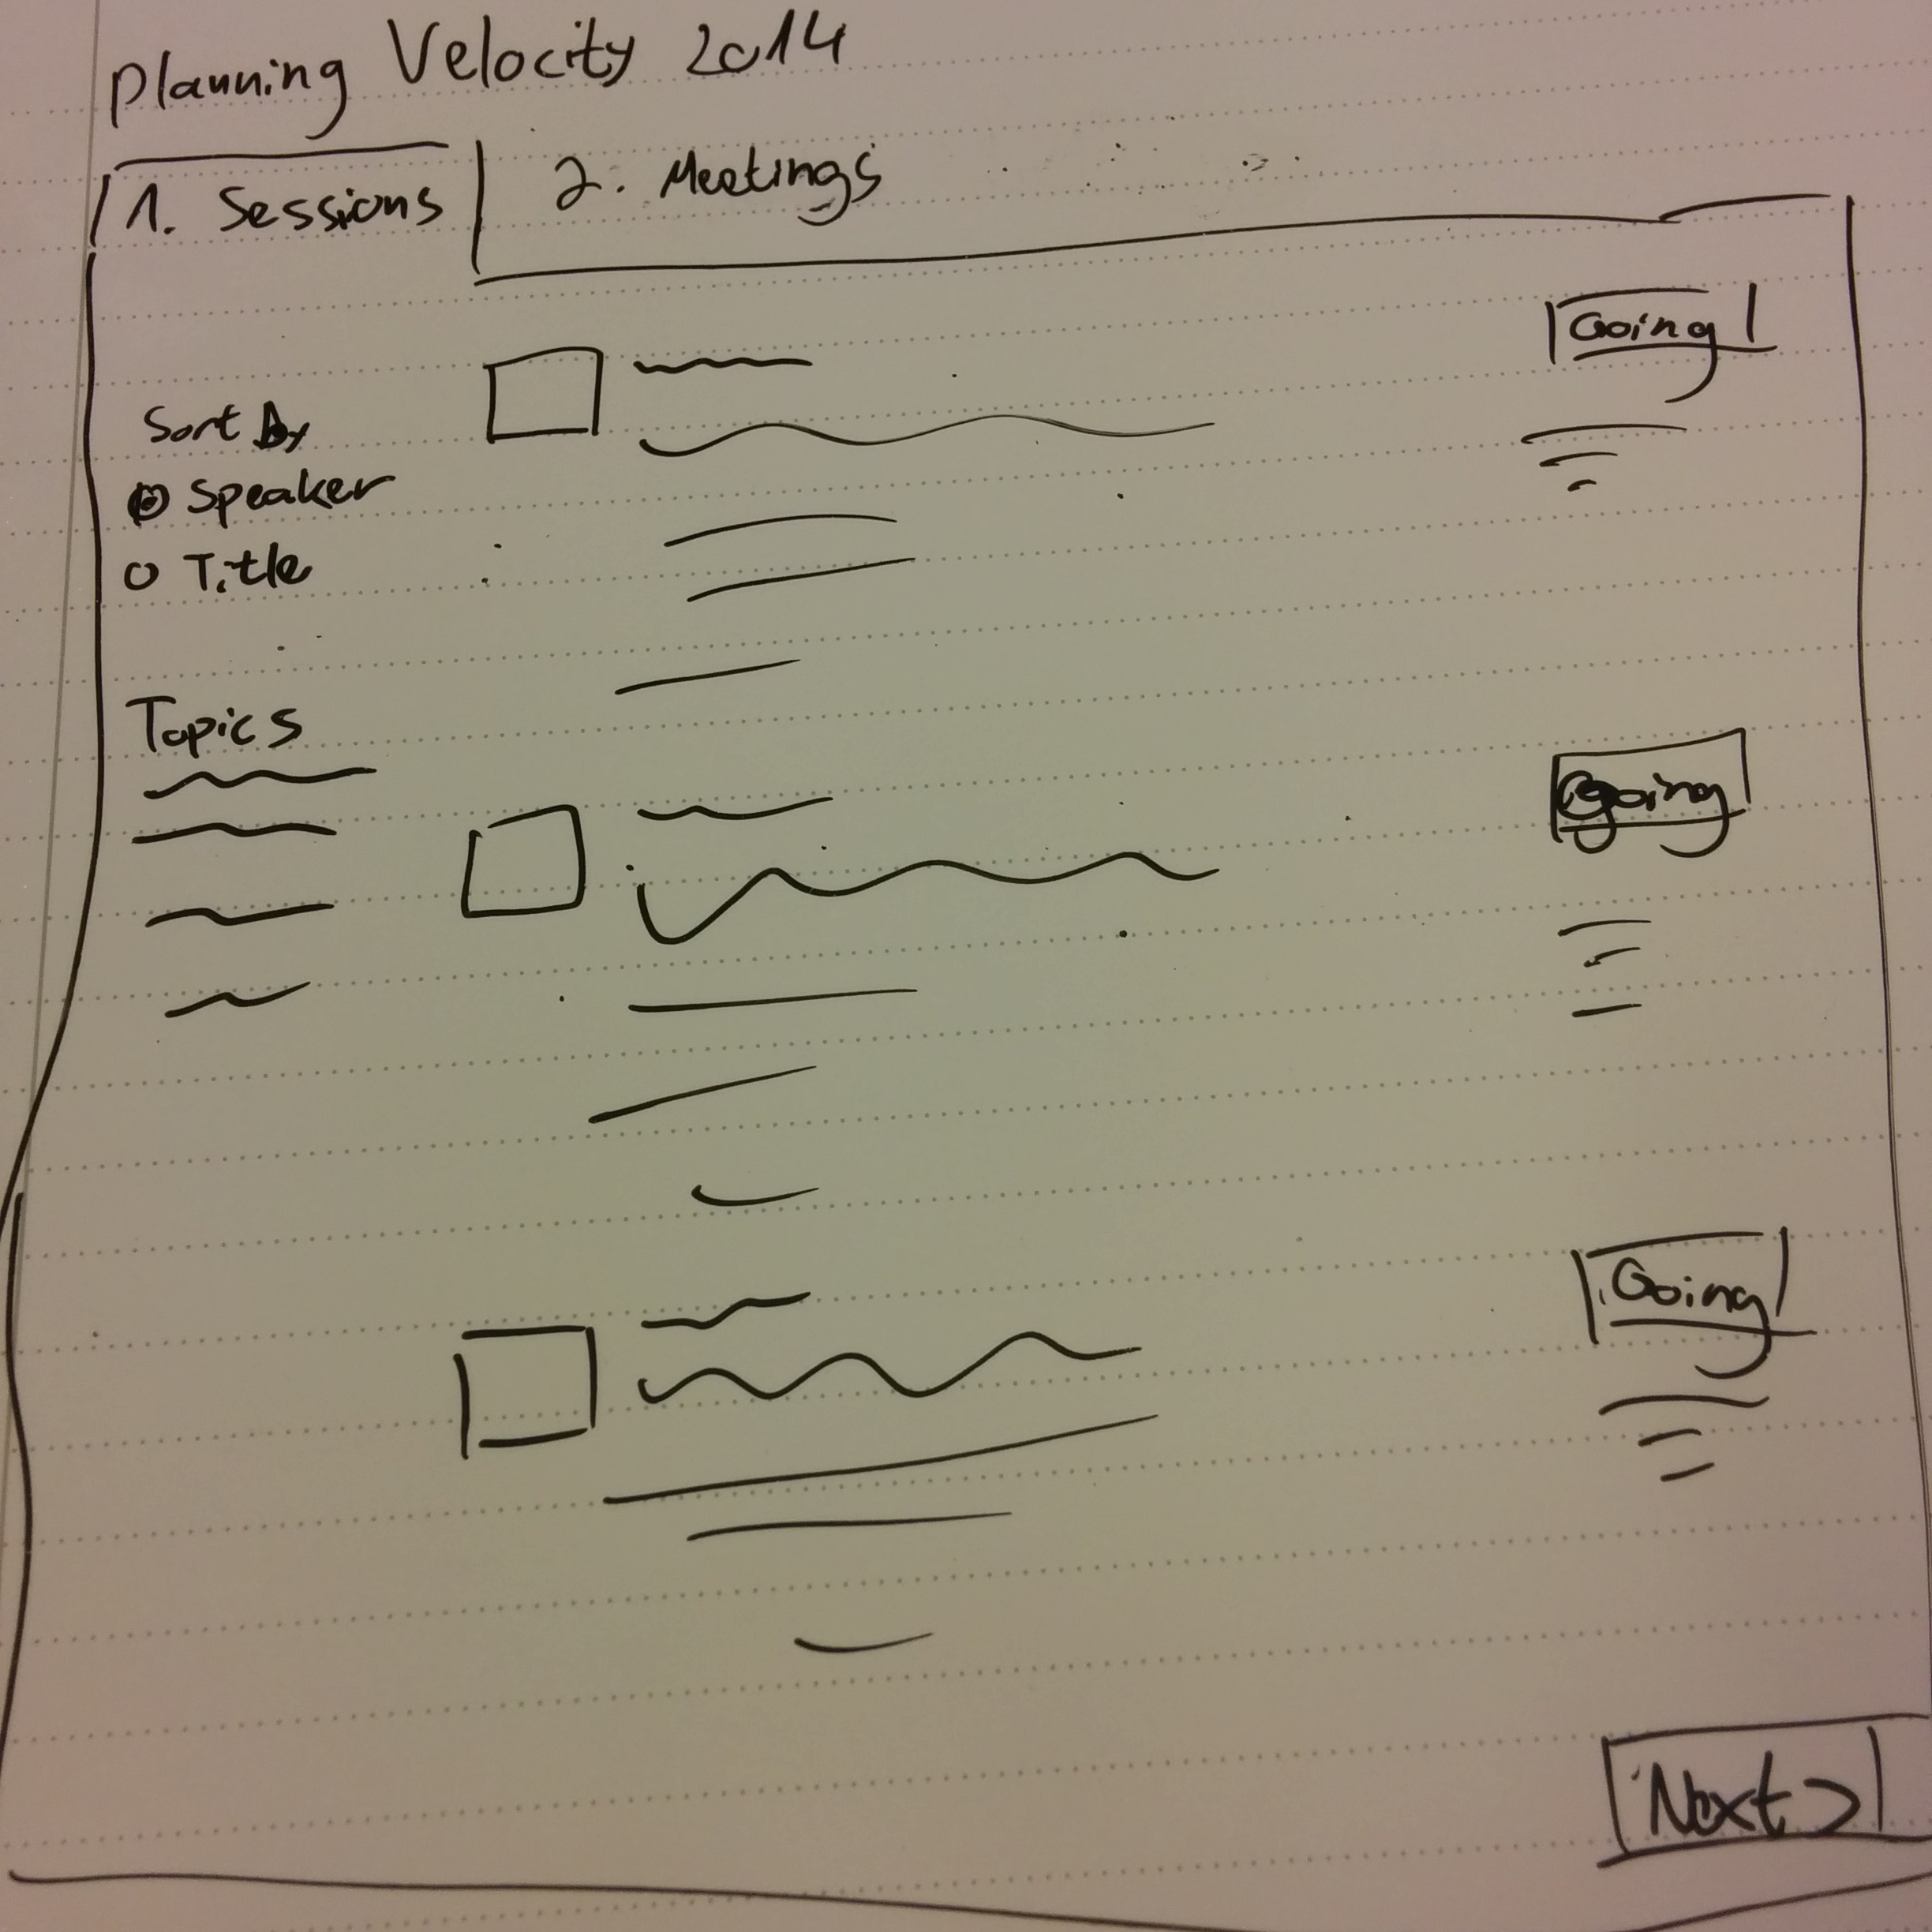 Planning Velocity 2014
1. Sessions
2. Meetings
Going
Sort By
Speaker
Title
Topics
Going
Going
Next >